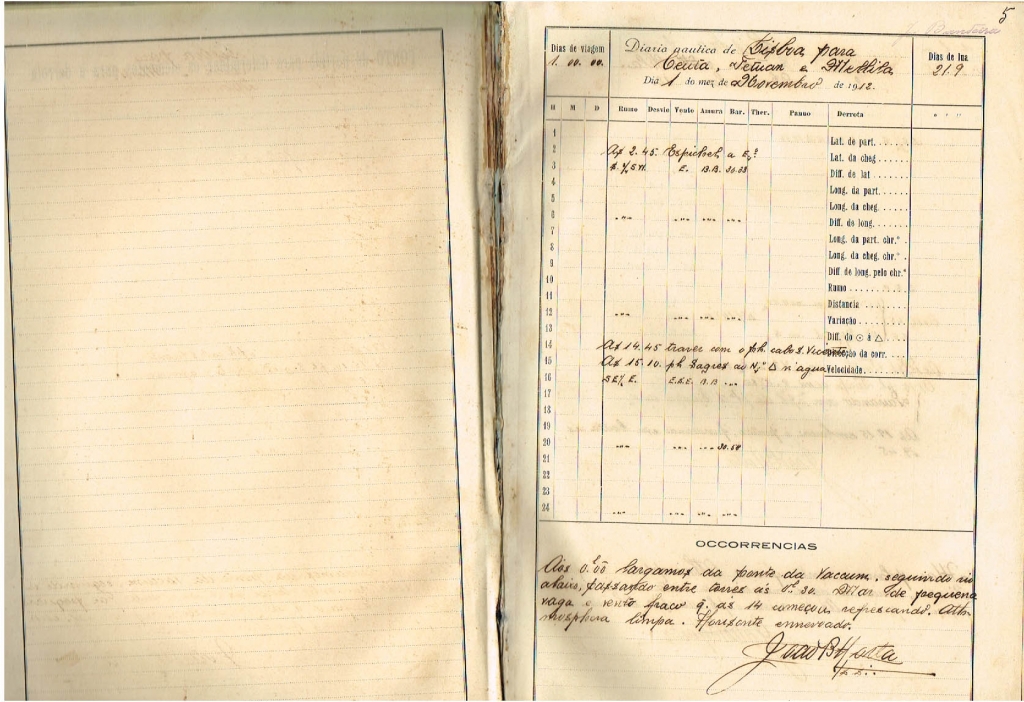 5
Dias de viagem
1. 00. 00.
Diario nautico de Lisboa para
Ceuta, Tetuan e Melilla
Diá 1 do mez de Novembro de 1912.
Dias de lua
21.9
H M D Rumo Desvio Vento Amura Bar. Ther. Panno Derrota
1
2
3
4
5
6
7
8
9
10
11
12
13
14
15
16
17
18
19
20
21
22
23
24
Ás 2.45. Espichel a E.
E. B.B. 30.53
Ás 14.45 travez com o ph. cabo S. Vicente
Ás 15.10. ph Sagres ao N. Δ n'agua
SE¼E. E.S.E. B.B
30.50
Lat. de part.
Lat. da cheg
Diff. de lat
Long. da part.
Long. da cheg.
Diff. de long.
Long. da part. chr.º
Long. da cheg. chr.º
Diff de long. pelo chr.º
Rumo
Distancia
Variação
Diff. do ⊙ á △
Direcção da corr.
Velocidade
OCCORRENCIAS
Aos 0.00 largamos da ponte da Vaccum, seguindo rio
abaixo, passando entre torres ás 1.30. Mar de pequena
vaga e vento fraco q. ás 14 começou refrescando. Ath-
mosphera limpa. Horisonte ennevoado.
João B